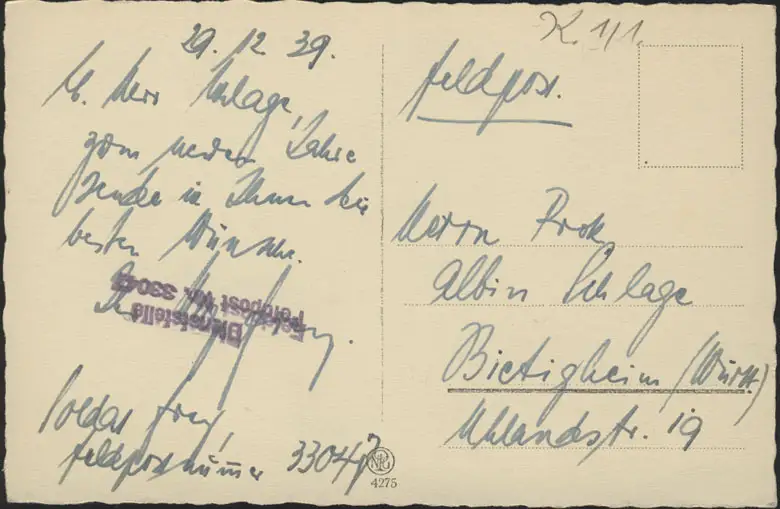 29. 12. 39.
L. Herr Schlage,
zum neuen Jahre
sende ich Ihnen die
besten Wünsche.
Ihr
Dienststelle
Feldpost Nr. 33047
Soldat Frey,
Feldpostnummer 33047
K. 1/1.
Feldpost.
Herrn Prok.
Albin Schlage
Bietigheim (Württ)
Uhlandstr. 19
4275